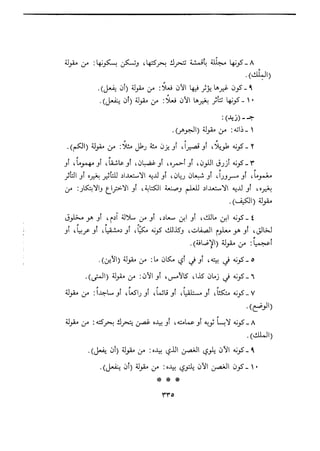 ٨ - كونها مجلّلة بأقمشة تتحرك بحركتها، وتسكن بسكونها: من مقولة
(المِلْك).
٩ - كون غيرها يؤثر فيها الآن فعلاً: من مقولة (أن يفعل).
١٠ - كونها تتأثر بغيرها الآن فعلاً: من مقولة (أن ينفعل).
جـ - (زيد):
١ - ذاته: من مقولة (الجوهر).
٢ - كونه طويلاً، أو قصيراً، أو يزن مئة رطل مثلاً: من مقولة (الكم).
٣ - كونه أزرق اللون، أو أحمر، أو غضبان، أو عاشقاً، أو مهموماً، أو
مغموماً، أو مسروراً، أو شبعان أو ريان، أو لديه الاستعداد للتأثير بغيره أو التأثر
بغيره، أو لديه الاستعداد للعلم وصنعة الكتابة، أو الاختراع والابتكار: من
مقولة (الكيف).
٤ - كونه ابن مالك، أو ابن سعاد، أو من سلالة آدم، أو هو مخلوق
لخالق، أو هو معلوم الصفات، وكذلك كونه مكيّاً، أو دمشقياً، أو عربياً، أو
أعجمياً: من مقولة (الإضافة).
٥ - كونه في بيته، أو في أي مكان ما: من مقولة (الأين).
٦ - كونه في زمان كذا، كالأمس، أو الآن: من مقولة (المتى).
٧ - كونه متكئاً، أو مستلقياً، أو قائماً، أو راكعاً، أو ساجداً: من مقولة
(الوضع).
٨ - كونه لابساً ثوبه أو عمامته، أو بيده غصن يتحرك بحركته: من مقولة
(الملك).
٩ - كونه الآن يلوي الغصن الذي بيده: من مقولة (أن يفعل).
١٠ - كون الغصن الآن يلتوي بيده: من مقولة (أن ينفعل).
* * *
٣٣٥